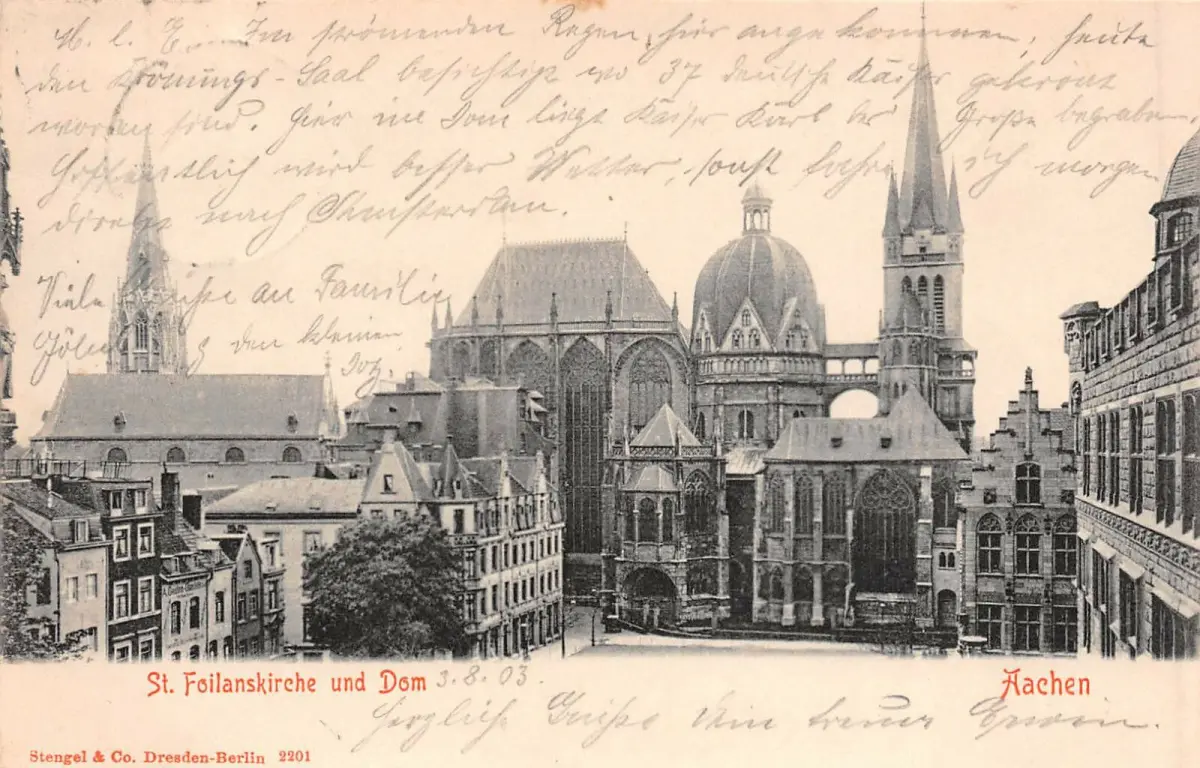 M. l. E. Im strömenden Regen, hier angekommen, heute
den Krönungs-Saal besichtigt wo 37 deutsche Kaiser gekrönt
worden sind. Hier im Dom liegt Kaiser Karl der Große begraben,
Hoffentlich wird besser Wetter, sonst fahre ich morgen
direkt nach Amsterdam.
Viele Grüße an Familie
den kleinen
St. Foilanskirche und Dom 3.8.03.
Aachen
Herzliche Grüße Dein treuer Erwin.
Stengel & Co. Dresden-Berlin 2201